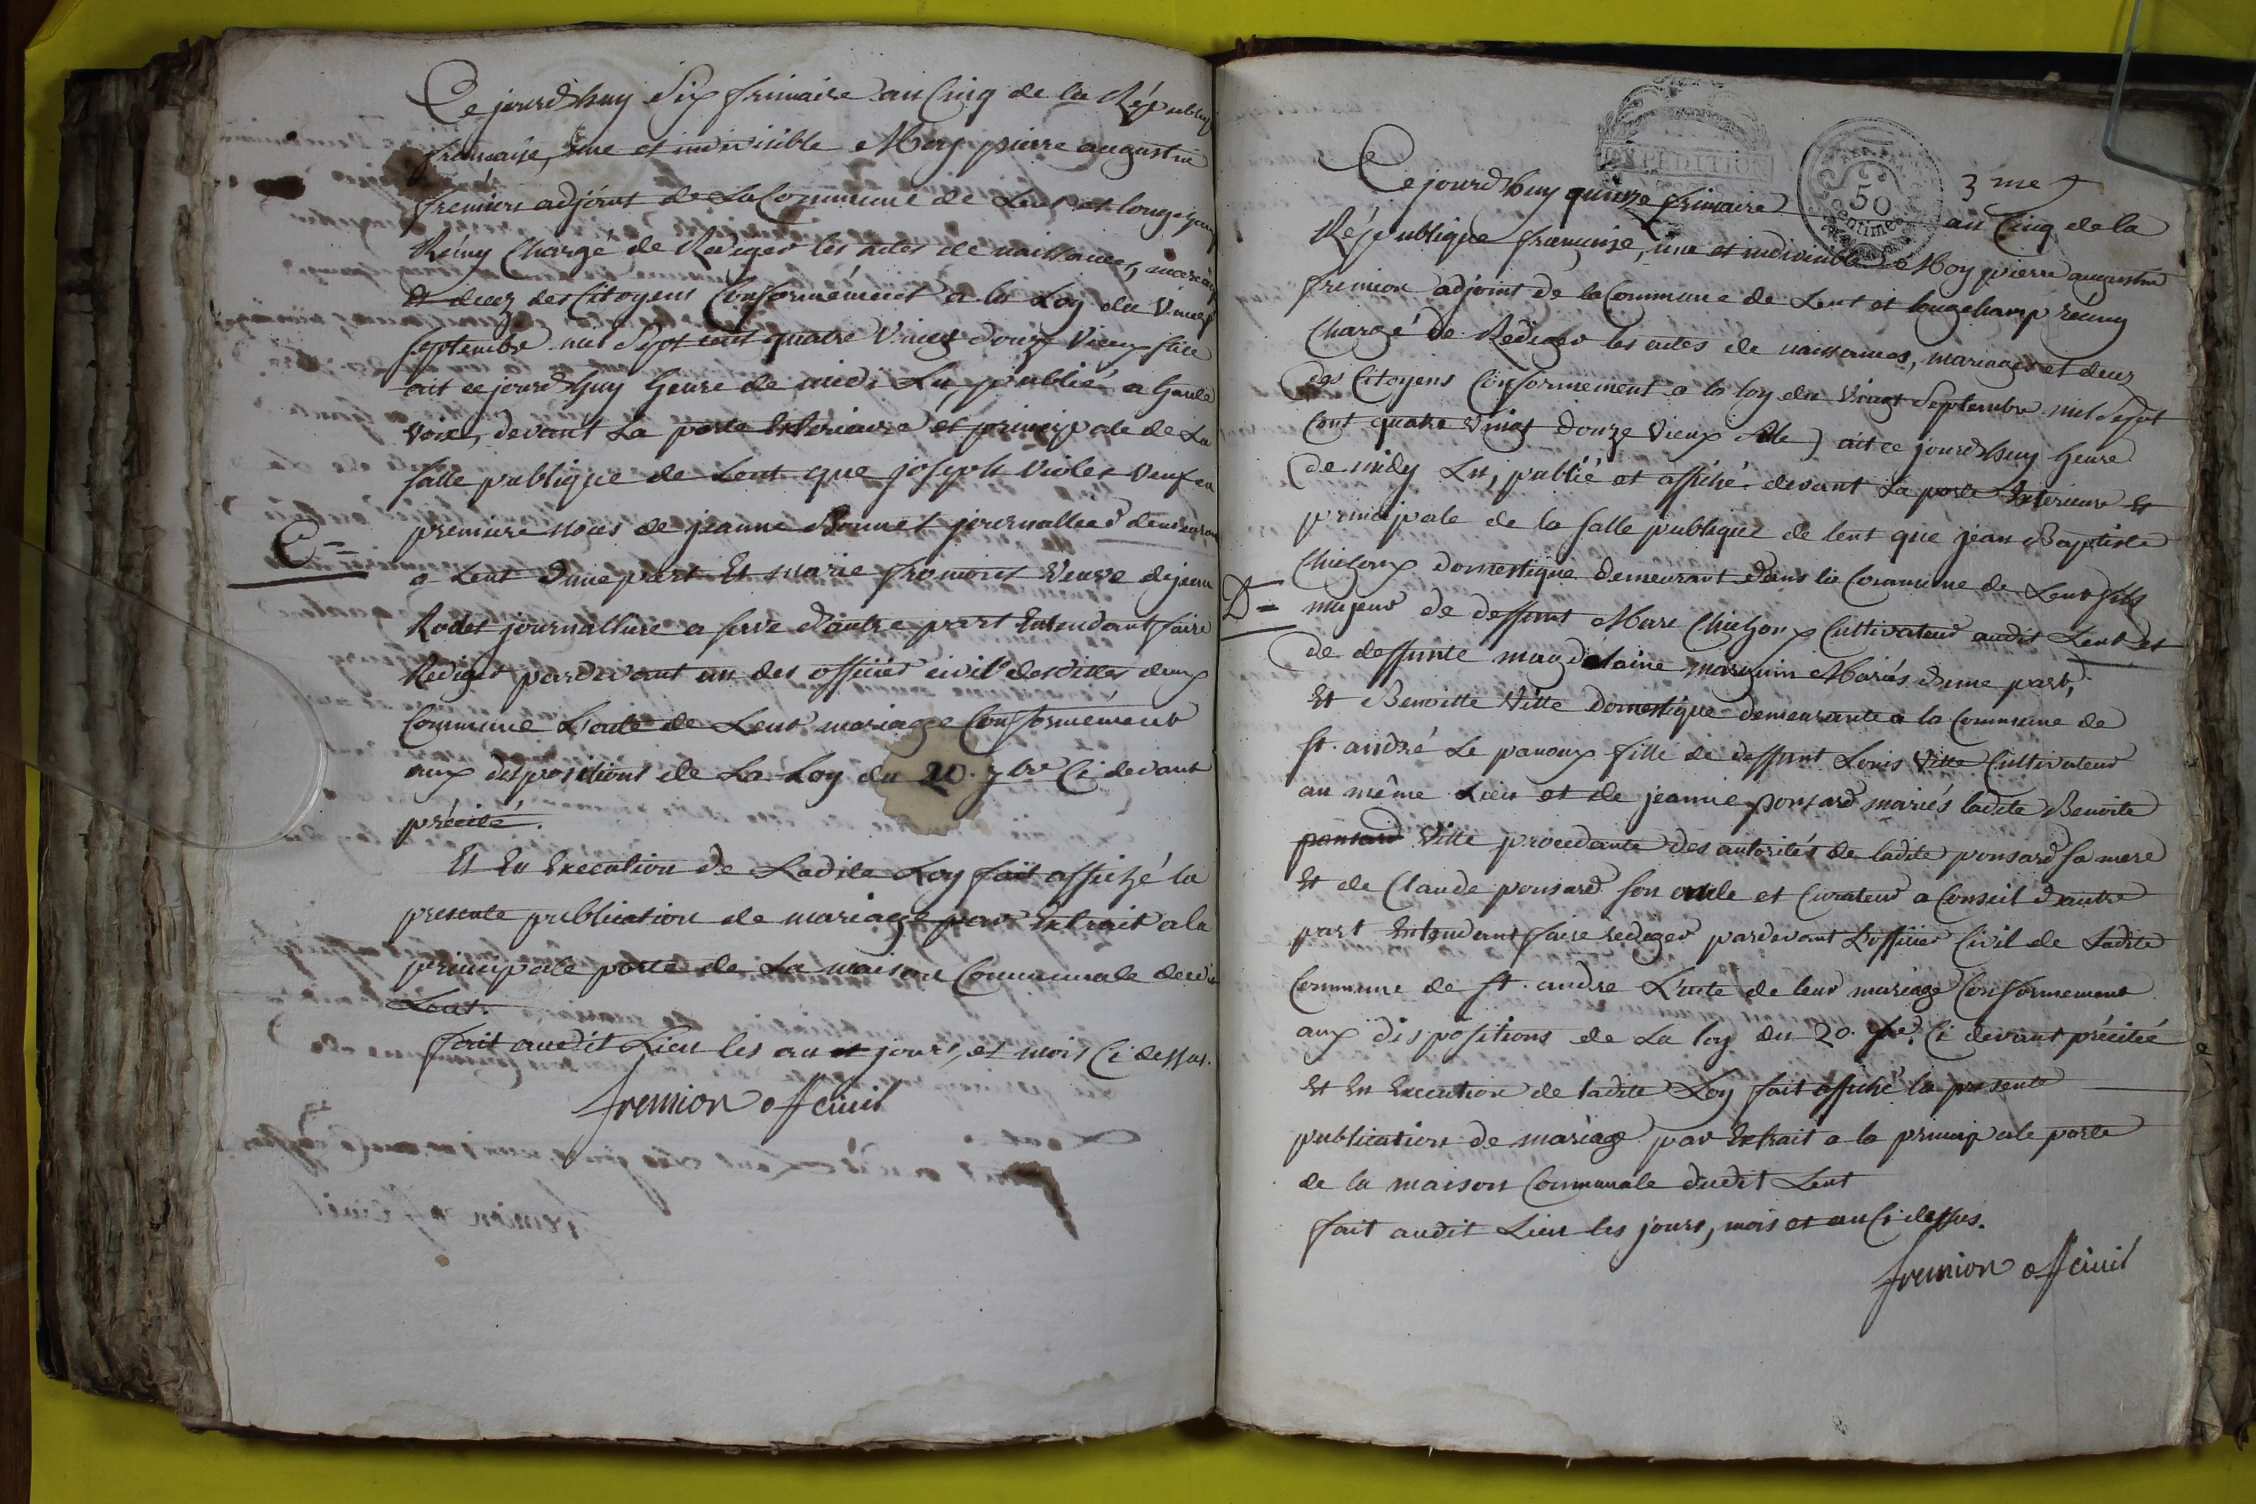 Ce jourd'huy Six frimaire an Cinq de la Républiq
francaise, une et indivisible Moy pierre augustin
fremion adjoint de La Commune de Lent et longchamp
Réuny Chargé de Rediger les actes de naissances, mariag
et decez des Citoyens Conformément a la Loy du Vingt
septembre mil Sept cent quatre Vingt douze Vieux stile
ait ce jourd'huy heure de midi Lu, publié a haute
voix, devant La porte Exterieure et principale de La
salle publique de Lent que joseph Violet Veuf en
C=
premiere noces de jeanne Bonnet journallier demeurant
a Lent d'une part Et marie Veuve de jean
Rodet journalliere a serve d'autre part Entendant faire
Rediger pardevant un des officier civil desdittes deux
Commune L'acte de Leur mariage Conformément
aux dispositions de La Loy du 20. 7bre Ci devant
précité.
Et En Execution de Ladite Loy fait affiché la
presente publication de mariage par Extrait a la
principale porte de La maison Communale dudit
Lent.
fait audit Lieu les an et jours, et mois Ci dessus.
fremion off civil
EXPEDITION
50
centimes
3me
Ce jourd'huy quinze frimaire an Cinq de la
République francaise, une et indivisible Moy pierre augustin
fremion adjoint de la Commune de Lent et longchamp réuny
Chargé de Rediger les actes de naissances, mariages et decez
des Citoyens Conformement a la loy du Vingt Septembre mil sept
Cent quatre Vingt douze Vieux stile) ait ce jourd'huy heure
de midy Lu, publié et affiché devant La porte Exterieure Et
principale de la salle publique de lent que jean Baptiste
Domestique Demeurant dans la Commune de Lent fils
D=
majeur de deffunt Marc Cultivateur audit Lent et
de deffunte magdelaine Mariés d'une part,
Et Benoitte Vitte Domestique demeurante a la Commune de
st. andré Le panoux fille de deffunt Louis Vitte Cultivateur
au même Lieu et de jeanne ponsard mariés ladite Benoite
ponsard Vitte procedante des autorités de ladite ponsard sa mere
Et de Claude ponsard son oncle et Curateur a Conseil d'autre
part Entendant faire rediger pardevant L'officier Civil de Ladite
Commune de st. andre L'acte de leur mariage Conformement
aux dispositions de La loy du 20. Ci devant précitée
Et En Execution de ladite Loy fait affiché la presente
publication de mariage par Extrait a la principale porte
de la maison Communale dudit Lent
fait audit Lieu les jours, mois et an Ci dessus.
fremion off civil